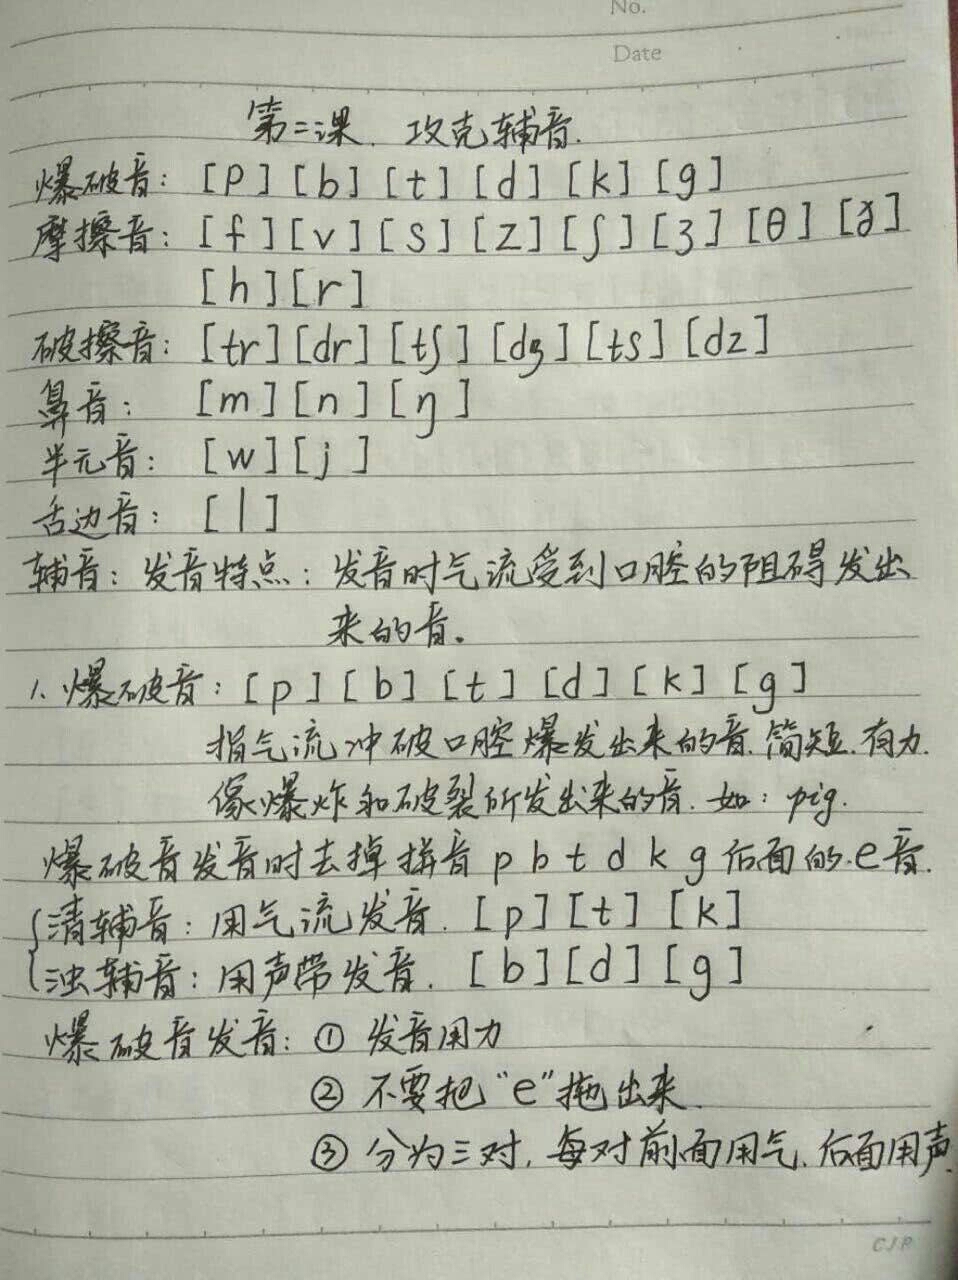 No.
Date
第二课. 攻克辅音.
爆破音: [p] [b] [t] [d] [k] [g]
摩擦音: [f] [v] [s] [z] [ʃ] [ʒ] [θ] [ð]
[h] [r]
破擦音: [tr] [dr] [tʃ] [dʒ] [ts] [dz]
鼻音: [m] [n] [ŋ]
半元音: [w] [j]
舌边音: [l]
辅音: 发音特点: 发音时气流受到口腔的阻碍发出
来的音。
1、爆破音: [p] [b] [t] [d] [k] [g]
指气流冲破口腔爆发出来的音. 简短. 有力.
像爆炸和破裂所发出来的音. 如: pig.
爆破音发音时去掉拼音 p b t d k g 后面的·e音.
{清辅音: 用气流发音. [p] [t] [k]
浊辅音: 用声带发音. [b] [d] [g]
爆破音发音: ① 发音用力
② 不要把“e”拖出来.
③ 分为三对, 每对前面用气. 后面用声.
CJP